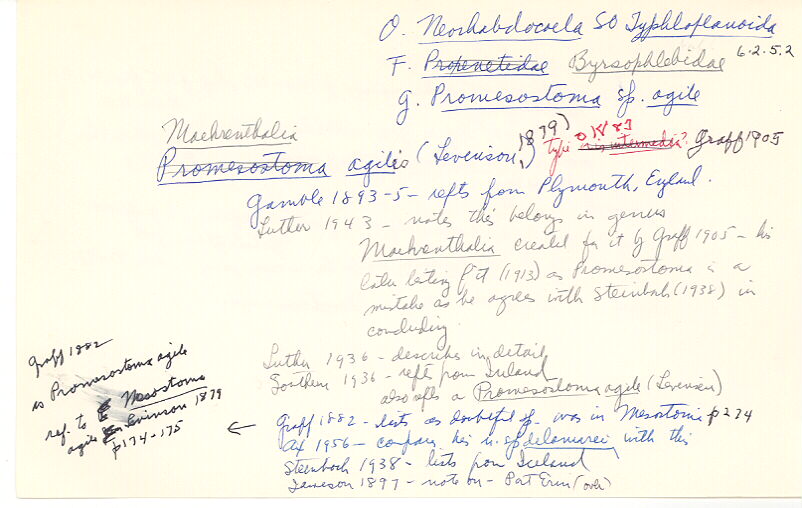 O. Neorhabdocoela SO Typhloplanoida
F. Proxenetidae Byrsophlebidae 6.2.5.2
G. Promesostoma sp. agile
Maehrenthalia
Promesostoma agilis (Levenson, 1879) type intermedia? Graff 1905
Gamble 1893-5 - repts from Plymouth, England.
Luther 1943 - notes this belongs in genus
Maehrenthalia created for it by Graff 1905 - his
later listing of it (1913) as Promesostoma is a
mistake as he agrees with Steinbock (1938) in
concluding.
Luther 1936 - describes in detail
Southern 1936 - repts from Ireland
also repts a Promesostoma agile (Levenson)
Graff 1882 - lists as doubtful sp. was in Mesostoma p274
Ax 1956 - compares his n. sp delamarei with this
Steinbock 1938 - lists from Iceland
Jameson 1897 - note on - Port Erin (over)
Graff 1882
as Promesostoma agile
ref. to Mesostoma
agilis Levinson 1879
p174-175